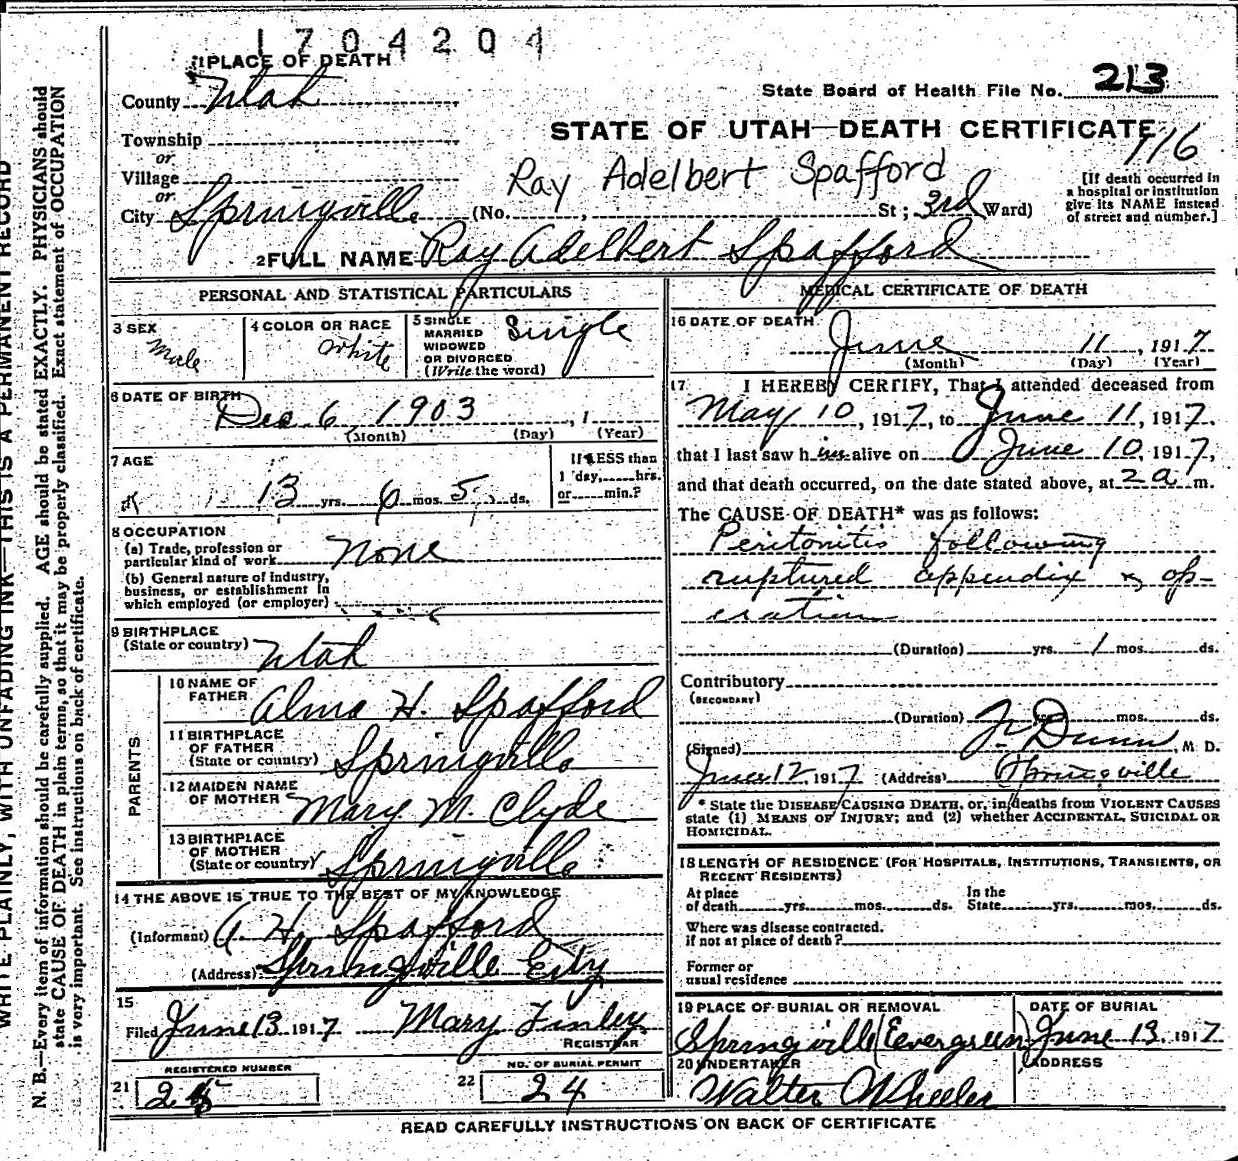 1704204
1 PLACE OF DEATH
County Utah
State Board of Health File No. 213
STATE OF UTAH—DEATH CERTIFICATE
116
Township
or
Village
or
Ray Adelbert Spafford
City Springville (No. , St; 3rd Ward)
[If death occurred in
a hospital or institution
give its NAME instead
of street and number.]
2 FULL NAME Ray Adelbert Spafford
PERSONAL AND STATISTICAL PARTICULARS
3 SEX
Male
4 COLOR OR RACE
White
5 SINGLE
MARRIED
WIDOWED
OR DIVORCED
(Write the word)
Single
6 DATE OF BIRTH
Dec 6, 1903 , 1
(Month) (Day) (Year)
7 AGE
13 yrs. 6 mos. 5 ds.
If LESS than
1 day, hrs.
or min.?
8 OCCUPATION
(a) Trade, profession or
particular kind of work None
(b) General nature of industry,
business, or establishment in
which employed (or employer)
9 BIRTHPLACE
(State or country) Utah
PARENTS
10 NAME OF
FATHER Alma H. Spafford
11 BIRTHPLACE
OF FATHER
(State or country) Springville
12 MAIDEN NAME
OF MOTHER Mary M. Clyde
13 BIRTHPLACE
OF MOTHER
(State or country) Springville
14 THE ABOVE IS TRUE TO THE BEST OF MY KNOWLEDGE
(Informant) A. H. Spafford
(Address) Springville City
15
Filed June 13 1917 Mary Finley
REGISTRAR
21 REGISTERED NUMBER
22 NO. OF BURIAL PERMIT
24
MEDICAL CERTIFICATE OF DEATH
16 DATE OF DEATH
June 11, 1917
(Month) (Day) (Year)
17 I HEREBY CERTIFY, That I attended deceased from
May 10, 1917, to June 11, 1917.
that I last saw him alive on June 10, 1917,
and that death occurred, on the date stated above, at 2 a m.
The CAUSE OF DEATH* was as follows:
Peritonitis following
ruptured appendix & op-
eration
(Duration) yrs. 1 mos. ds.
Contributory
(SECONDARY)
(Duration) yrs. mos. ds.
(Signed) Dunn, M D.
June 12 1917 (Address) Springville
* State the DISEASE CAUSING DEATH, or, in deaths from VIOLENT CAUSES
state (1) MEANS OF INJURY; and (2) whether ACCIDENTAL, SUICIDAL OR
HOMICIDAL.
18 LENGTH OF RESIDENCE (FOR HOSPITALS, INSTITUTIONS, TRANSIENTS, OR
RECENT RESIDENTS)
At place
of death yrs. mos. ds.
In the
State yrs. mos. ds.
Where was disease contracted.
if not at place of death?
Former or
usual residence
19 PLACE OF BURIAL OR REMOVAL
Springville (Evergreen)
DATE OF BURIAL
June 13, 1917
20 UNDERTAKER
Walter Wheeler
ADDRESS
READ CAREFULLY INSTRUCTIONS ON BACK OF CERTIFICATE
WRITE PLAINLY, WITH UNFADING INK—THIS IS A PERMANENT RECORD
N. B.—Every item of information should be carefully supplied. AGE should be stated EXACTLY. PHYSICIANS should
state CAUSE OF DEATH in plain terms, so that it may be properly classified. Exact statement of OCCUPATION
is very important. See instructions on back of certificate.